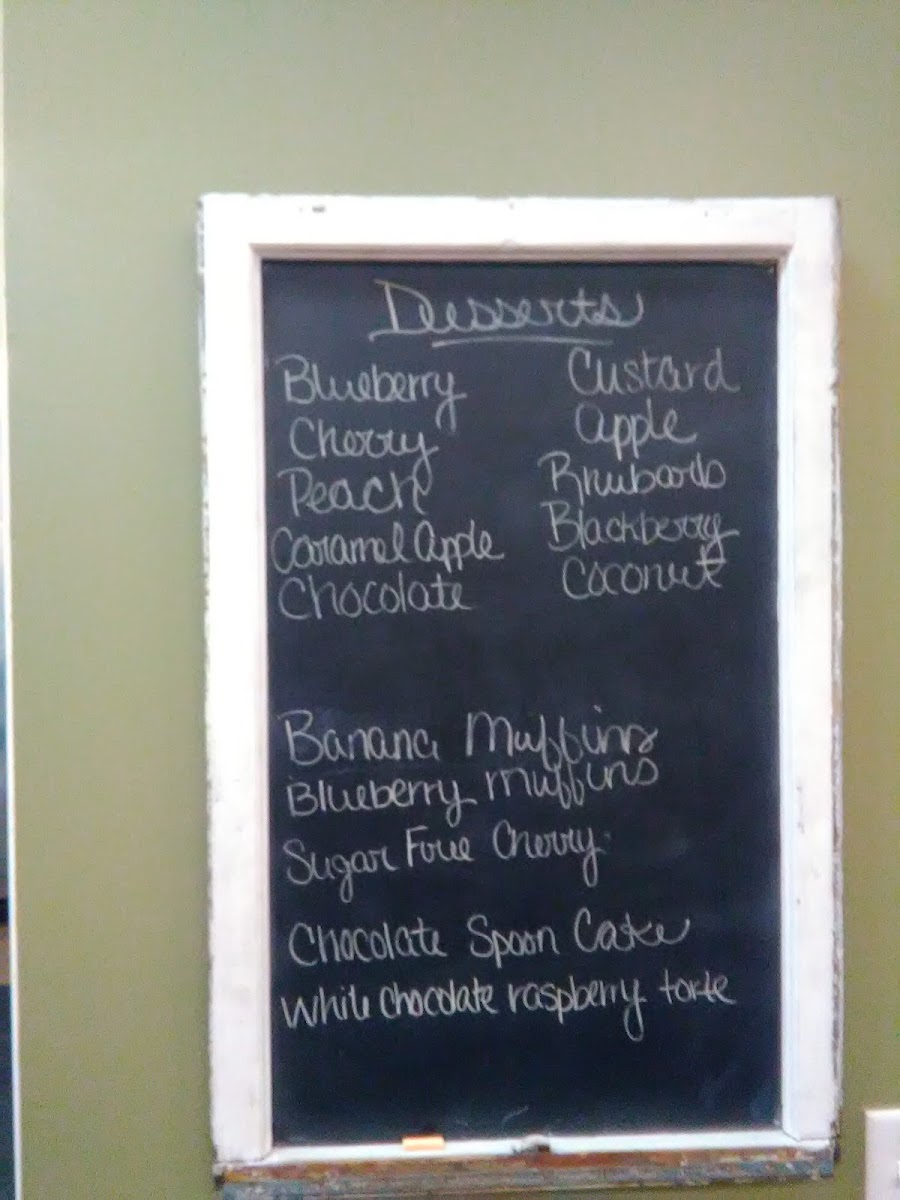 Desserts
Blueberry
Cherry
Peach
Caramel Apple
Chocolate
Custard
Apple
Rhubarb
Blackberry
Coconut
Banana Muffins
Blueberry Muffins
Sugar Free Cherry
Chocolate Spoon Cake
White chocolate raspberry torte